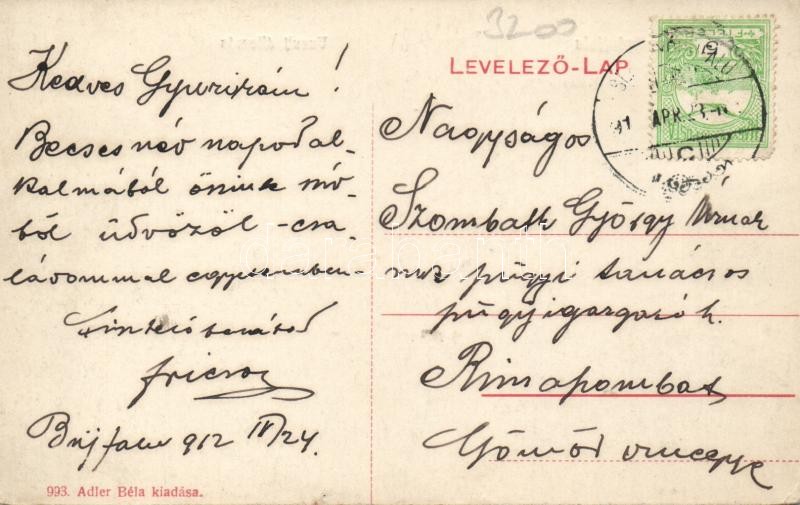 3200
LEVELEZŐ-LAP
Kedves Gyurikám!
Becses név napod al-
kalmából őszinte szí-
ből üdvözöl -csa-
ládommal egyetemben-
barátod
Fricsy
912 IV/24
993. Adler Béla kiadása.
Nagyságos
Szombath György Urnak
m. k. pügyi tanácsos
pügyigazgató h.
Rimaszombat
Gömör vmegye